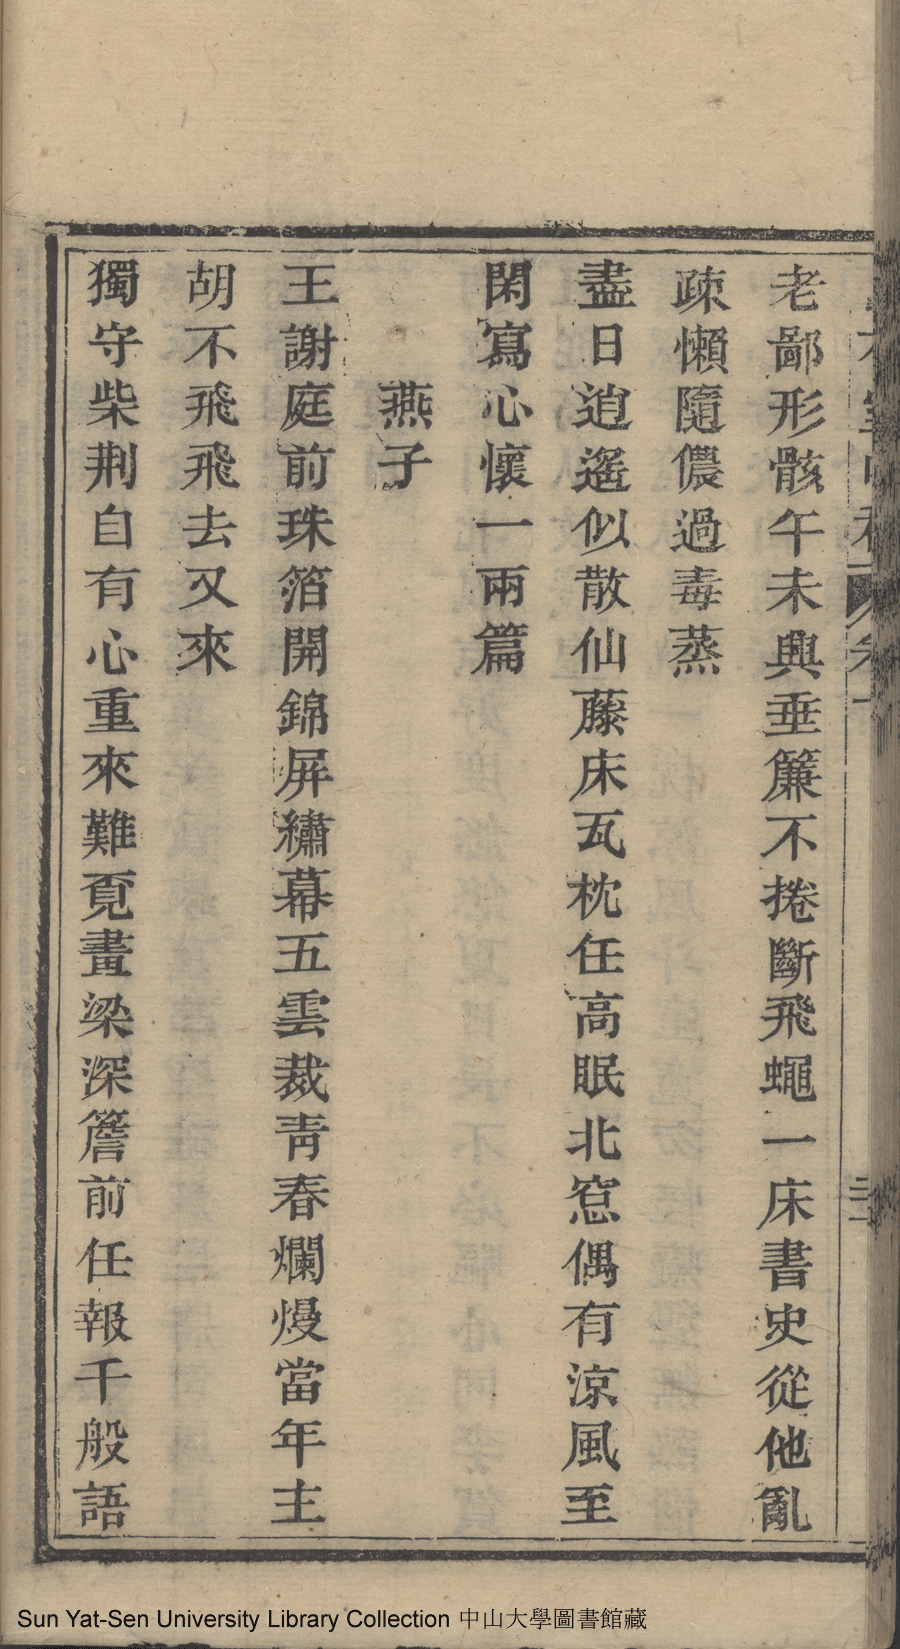 老鄙形骸午未興垂簾不捲斷飛蠅一床書史從他亂
疎懶隨儂過毒蒸
盡日逍遙似散仙藤床瓦枕任高眠北窓偶有涼風至
閑寫心懷一兩篇
燕子
王謝庭前珠箔開錦屏繡幕五雲裁青春爛熳當年主
胡不飛飛去又來
獨守柴荆自有心重來難覔畫梁深簷前任報千般語
Sun Yat-Sen University Library Collection 中山大學圖書館藏